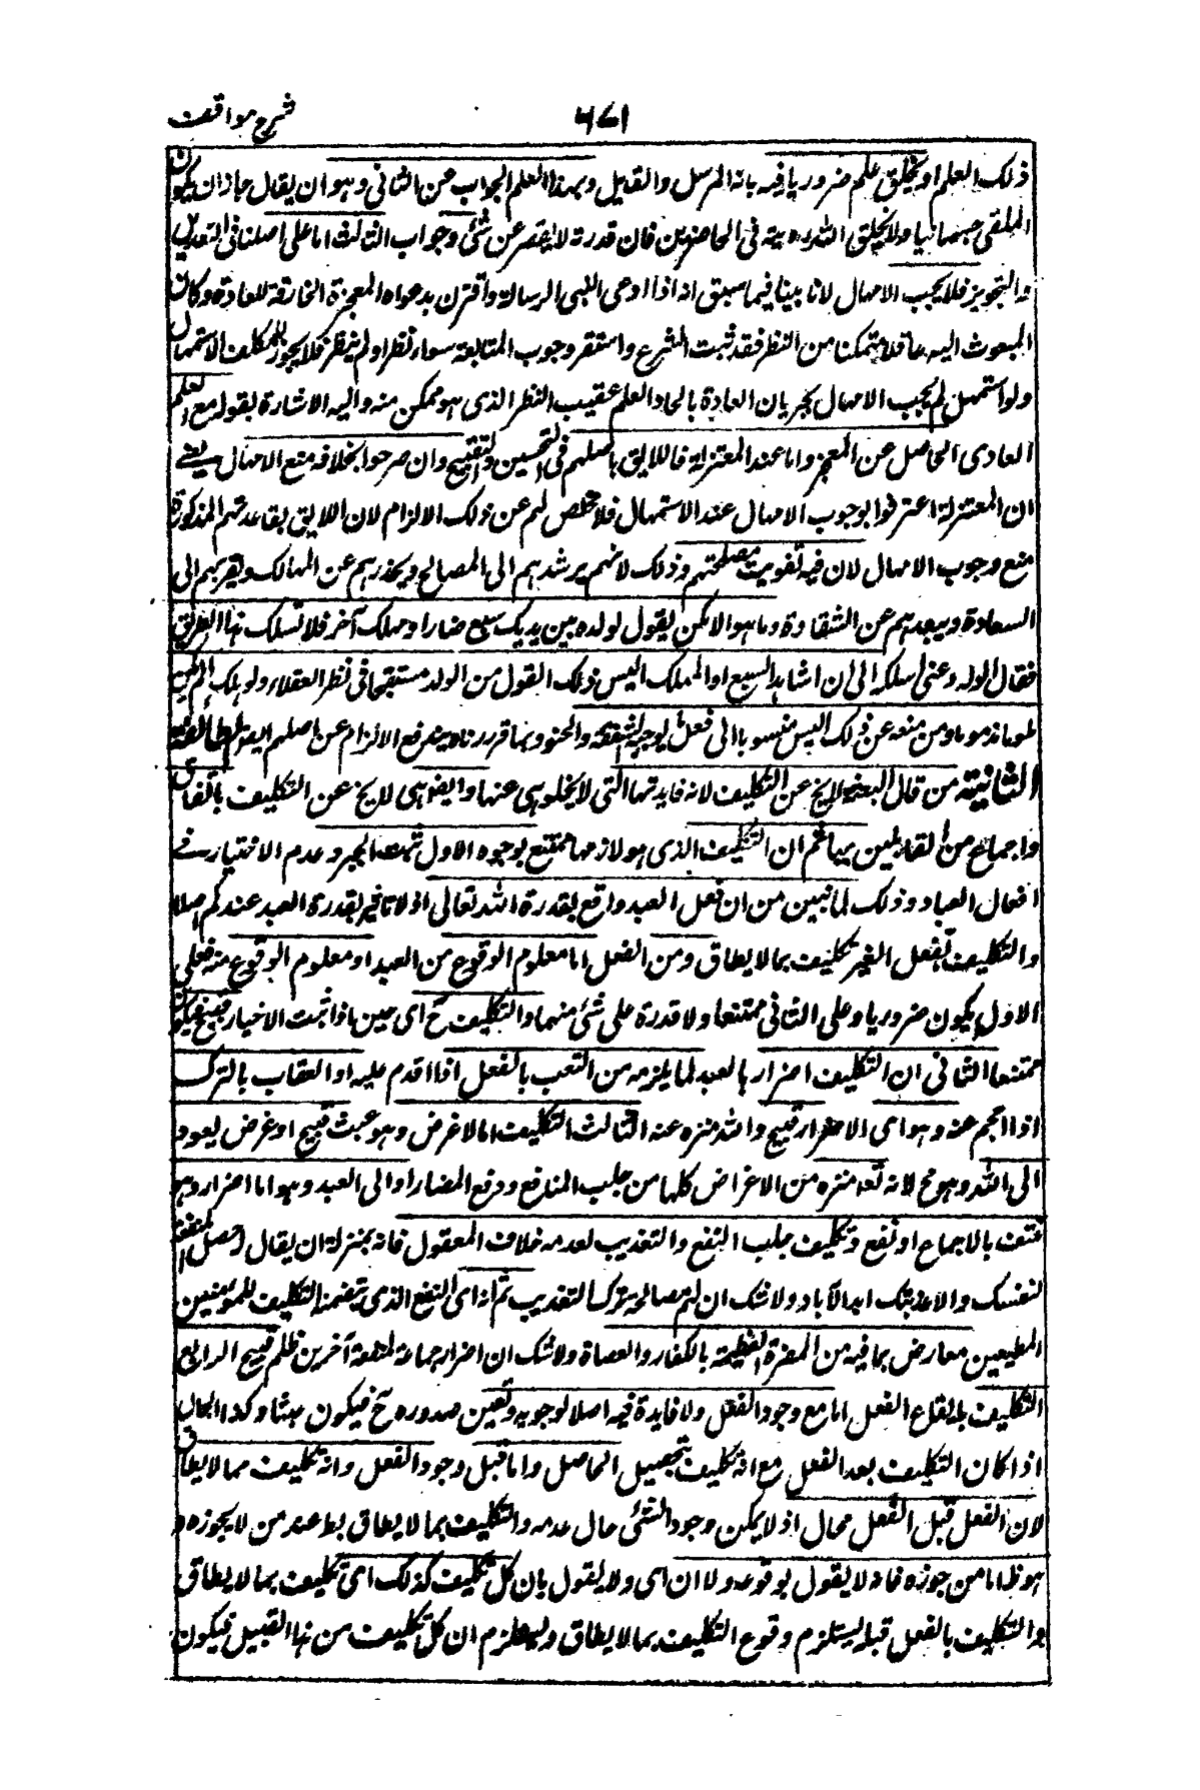 شرح مواقف
٦٧١
ذلك العلم او يخلق علم ضروريا فيه بانه المرسل والقايل وبهذا العلم الجواب عن الثانى وهو ان يقال جاز ان يكون
الملقى جسمانيا ولا يخلق الله رويته فى الحاضرين فان قدرته لا تقصر عن شئ وجواب الثالث اما على اصلنا فى التعديل
والتجويز فلا يجب الامهال لانا بينا فيما سبق انه اذا ادعى النبى الرسالة واقترن بدعواه المعجزة الخارقة للعادة وكان
المبعوث اليه عاقلا متمكنا من النظر فقد ثبت الشرع واستقر وجوب المتابعة سواء نظر او لم ينظر فلا يجوز للمكلف الاستمهال
ولو استمهل لم يجب الامهال لجريان العادة بايجاد العلم عقيب النظر الذى هو ممكن منه واليه الاشارة بقوله مع العلم
العادى الحاصل عن المعجز واما عند المعتزلة فاللايق باصلهم فى التحسين والتقبيح وان صرحوا بخلافه منع الامهال يعنى
ان المعتزلة اعترفوا بوجوب الامهال عند الاستمهال فلا مخلص لهم عن ذلك الالزام لان اللايق بقاعدتهم المذكورة
منع وجوب الامهال لان فيه تفويت مصلحتهم وذلك لانهم يرشدهم الى المصالح ويحذرهم عن المهالك ويقربهم الى
السعادة ويبعدهم عن الشقاوة وما هو الا كمن يقول لولده بين يديك سبع ضار او مهلك آخر فلا تسلك هذا الطريق
فقال الولد دعنى اسلكه الى ان اشاهد السبع او المهلك اليس ذلك القول من الولد مستقبحا فى نظر العقلاء ولو هلك الم يكن
ملوما مذموما ومن منعه عن ذلك اليس منسوبا الى فعل ما يوجبه الشفقة والحنو وبما قررناه يندفع الالزام عن اصلهم ايضا الطائفة
الثانية من قال البعثة لا يخ عن التكليف لانه فايدتها التى لا يخلو هى عنها وايضا هى لا يخ عن التكليف باتفاق
واجماع من القايلين بها ثم ان التكليف الذى هو لازمها ممتنع لوجوه الاول ثبت الجبر وعدم الاختيار فى
افعال العباد وذلك لما تبين من ان فعل العبد واقع بقدرة الله تعالى اذ لا تاثير لقدرة العبد عندكم اصلا
والتكليف بفعل الغير تكليف بما لا يطاق ومن الفعل اما معلوم الوقوع من العبد او معلوم اللاوقوع منه فعلى
الاول يكون ضروريا وعلى الثانى ممتنعا ولا قدرة على شئ منهما والتكليف ح اى حين اذا ثبت الاخيار قبيح فيكون
ممتنعا الثانى ان التكليف اضرار بالعبد لما يلزمه من التعب بالفعل اذا اقدم عليه او العقاب بالترك
اذا احجم عنه وهو اى الاضرار قبيح والله منزه عنه الثالث التكليف اما لا لغرض وهو عبث قبيح او لغرض يعود
الى الله وهو مح لانه تعه منزه عن الاغراض كلها من جلب المنافع ودفع المضار او الى العبد وهو اما اضرار وهو
منتف بالاجماع او نفع وتكليف جلب النفع والتعذيب لعدمه خلاف المعقول فانه بمنزلة ان يقال حصل المنفعة
لنفسك والا عذبتك ابد الآباد ولا شك ان لهم مصالحه ترك التعذيب ثم انه اى النفع الذى يتضمنه التكليف للمومنين
المطيعين معارض بما فيه من المضرة العظيمة بالكفار والعصاة ولا شك ان اضرار جماعة لمنفعة آخرين ظلم قبيح الرابع
التكليف بايقاع الفعل اما مع وجود الفعل ولا فايدة فيه اصلا لوجوبه وتعين صدوره ح فيكون عبثا وكذا الحال
اذا كان التكليف بعد الفعل مع انه تكليف بتحصيل الحاصل واما قبل وجود الفعل وانه تكليف مما لا يطاق
لان الفعل قبل الفعل محال اذ لا يمكن وجود الشئ حال عدمه والتكليف بما لا يطاق بط عند من لا يجوزه و
هو ظ اما من جوزه فانه لا يقول بوقوعه ولا ان اى ولا يقول بان كل تكليف كذلك اى تكليف بما لا يطاق
والتكليف بالفعل قبله يستلزم وقوع التكليف بما لا يطاق وليستلزم ان كل تكليف من هذا القبيل فيكون